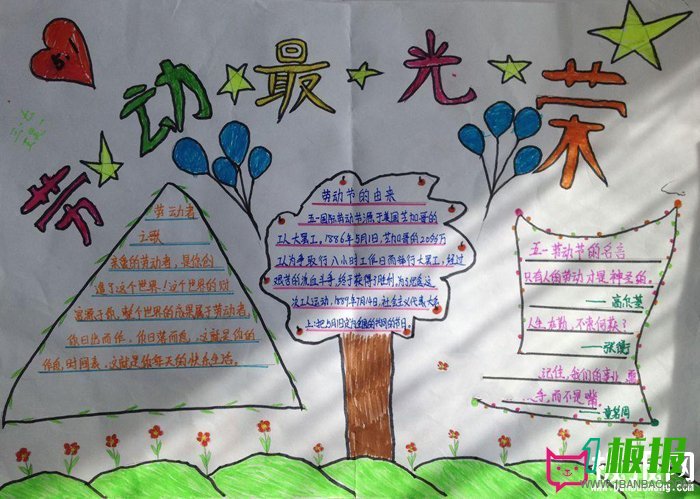 5.1
劳动最光荣
劳动者
之歌
亲爱的劳动者，是你创
造了这个世界！这个世界的财
富源于你，整个世界的成果属于劳动者，
你日出而作，你日落而息，这就是你的
作息时间表，这就是你每天的快乐生活。
劳动节的由来
五一国际劳动节源于美国芝加哥的
工人大罢工，1886年5月1日，芝加哥的
工人为争取行八小时工作日而举行大罢工，经过
艰苦的流血斗争，终于获得了胜利，为纪念这
次工人运动，1889年7月14日，社会主义代表大会
上，把5月1日定为全国的节日。
五一劳动节的名言
只有人的劳动才是神圣的。
——高尔基
人生在勤，不索何获？
——张衡
记住，我们的事业，要
手，而不是嘴。
——童第周
1板报网
WWW.1BANBAO.COM